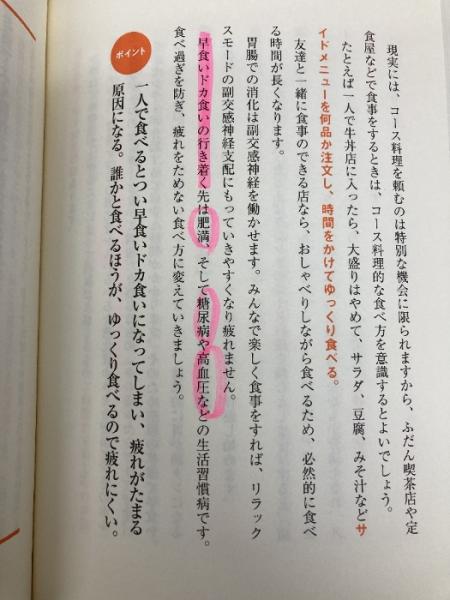 現実には、コース料理を頼むのは特別な機会に限られますから、ふだん喫茶店や定
食屋などで食事をするときは、コース料理的な食べ方を意識するとよいでしょう。
たとえば一人で牛丼店に入ったら、大盛りはやめて、サラダ、豆腐、みそ汁などサ
イドメニューを何品か注文し、時間をかけてゆっくり食べる。
友達と一緒に食事のできる店なら、おしゃべりしながら食べるため、必然的に食べ
る時間が長くなります。
胃腸での消化は副交感神経を働かせます。みんなで楽しく食事をすれば、リラック
スモードの副交感神経支配にもっていきやすくなり疲れません。
早食いドカ食いの行き着く先は肥満、そして糖尿病や高血圧などの生活習慣病です。
食べ過ぎを防ぎ、疲れをためない食べ方に変えていきましょう。
ポイント
一人で食べるとつい早食いドカ食いになってしまい、疲れがたまる
原因になる。誰かと食べるほうが、ゆっくり食べるので疲れにくい。